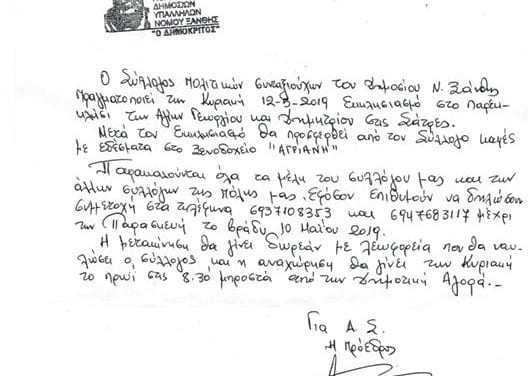 ΔΗΜΟΣΙΩΝ
ΥΠΑΛΛΗΛΩΝ
ΝΟΜΟΥ ΞΑΝΘΗΣ
"Ο ΔΗΜΟΚΡΙΤΟΣ"
Ο Σύλλογος Πολιτικών συνταξιούχων του Δημοσίου Ν. Ξάνθης
πραγματοποιεί την Κυριακή 12-5-2019 Εκκλησιασμό στο Παρεκ-
κλήσι των Αγίων Γεωργίου και Δημητρίου στις Σάτρες.
Μετά τον Εκκλησιασμό θα προσφερθεί από τον Σύλλογο καφές
με εδέσματα στο Ξενοδοχείο "ΑΓΡΙΑΝΗ"
Παρακαλούνται όλα τα μέλη του συλλόγου μας και των
άλλων συλλόγων της πόλης μας, εφόσον επιθυμούν να δηλώσουν
συμμετοχή στα τηλέφωνα 6937108353 και 6947683117 μέχρι
την Παρασκευή το βράδυ 10 Μαΐου 2019.
Η μετακίνηση θα γίνει δωρεάν με λεωφορεία που θα ναυ-
λώσει ο σύλλογος και η αναχώρηση θα γίνει την Κυριακή
το πρωί στις 8.30 μπροστά από την Δημοτική Αγορά.-
Για Δ.Σ.
Η Πρόεδρος